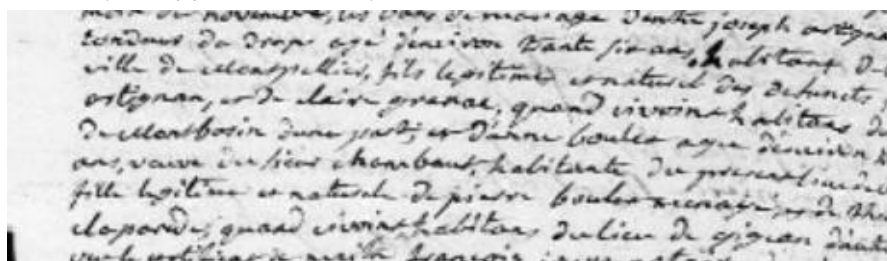 mois de novembre, les bans de mariage d'entre joseph astignan
tondeur de draps agé denviron trante six ans, habitant de
ville de Montpellier, fils legitime et naturel des defuncts
astignan, et de claire granae, quand vivoint habitans du
de Montbasin dune part; et danne boules agee denviron
ans, veuve du sieur chambaut, habitante du present lieu de
fille legitime et naturele de pierre boules menager et de
claparede, quand vivoint habitans du lieu de gigean dautre